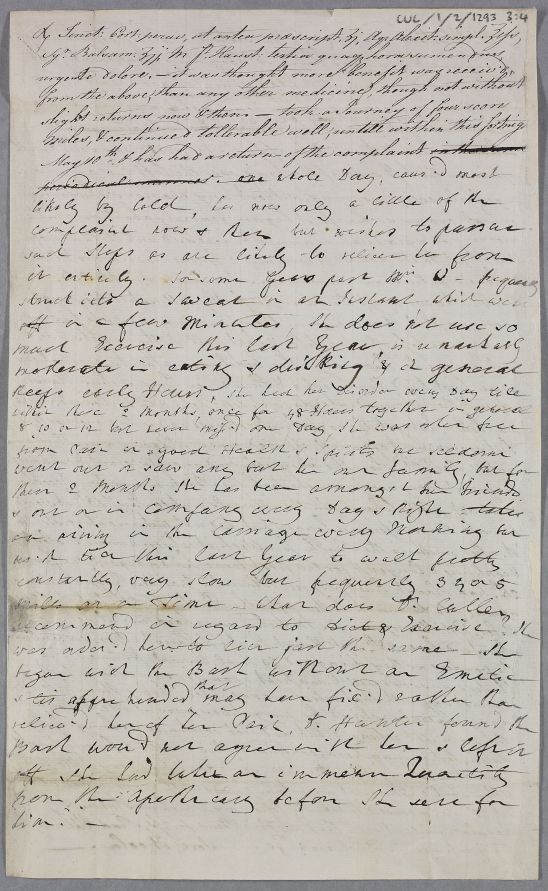 CUL/1/2/1293 3:4
℞ Tinct: Cort: peruv, ut antea præscript: ℥j, Aq: Alexit: simpl: ℥fs,
Syr: Balsam: ʒjj, M. f: Haust: tertia quaq hora sumend:
urgente dolore, – it was thought more benefit was receiv'd
from the above, than any other medicine, though not without
slight returns now & then – took a Journey of four score
Miles, & continued tollerable well, untill within this fortnig
May 10th & has had a return of the complaint
one whole Day, caus'd most
likely by Cold, has now only a little of the
complaint now & then but wishes to pursue
such Steps as are likely to relieve her from
it entirely. for some Years past Mrs W– frequently
struck into a Sweat in an Instant which went
off in a few Minutes, she does not use so
much Exercise this last Year, is remarkably
moderate in eating & drinking & in general
keeps early Hours, she had her disorder every Day till
within these 2 months, once for 48 Hours together in general
8 10 or 12 but never miss'd one Day she was when free
from Pain in good Health & Spirits but seldom
went out or saw any but her own family, but for
these 2 Months she has been amongst her friends
& out or in company every Day & Night takes
an airing in the Carriage every Morning but
us'd till this last Year to walk pretty
constantly, very slow but frequently 3 4 or 5
Miles at a Time – what does Dr. Cullen
recommend in regard to Diet & Exercise, She
was order'd here to live just the same – She
began with the Bark without an Emetic
& tis apprehended that may have fix'd rather than
reliev'd her of her Pain, Dr. Hunter found the
Bark would not agree with her & left it
off she had taken an immense Quantity
from the Apothecary before she sent for
him. –